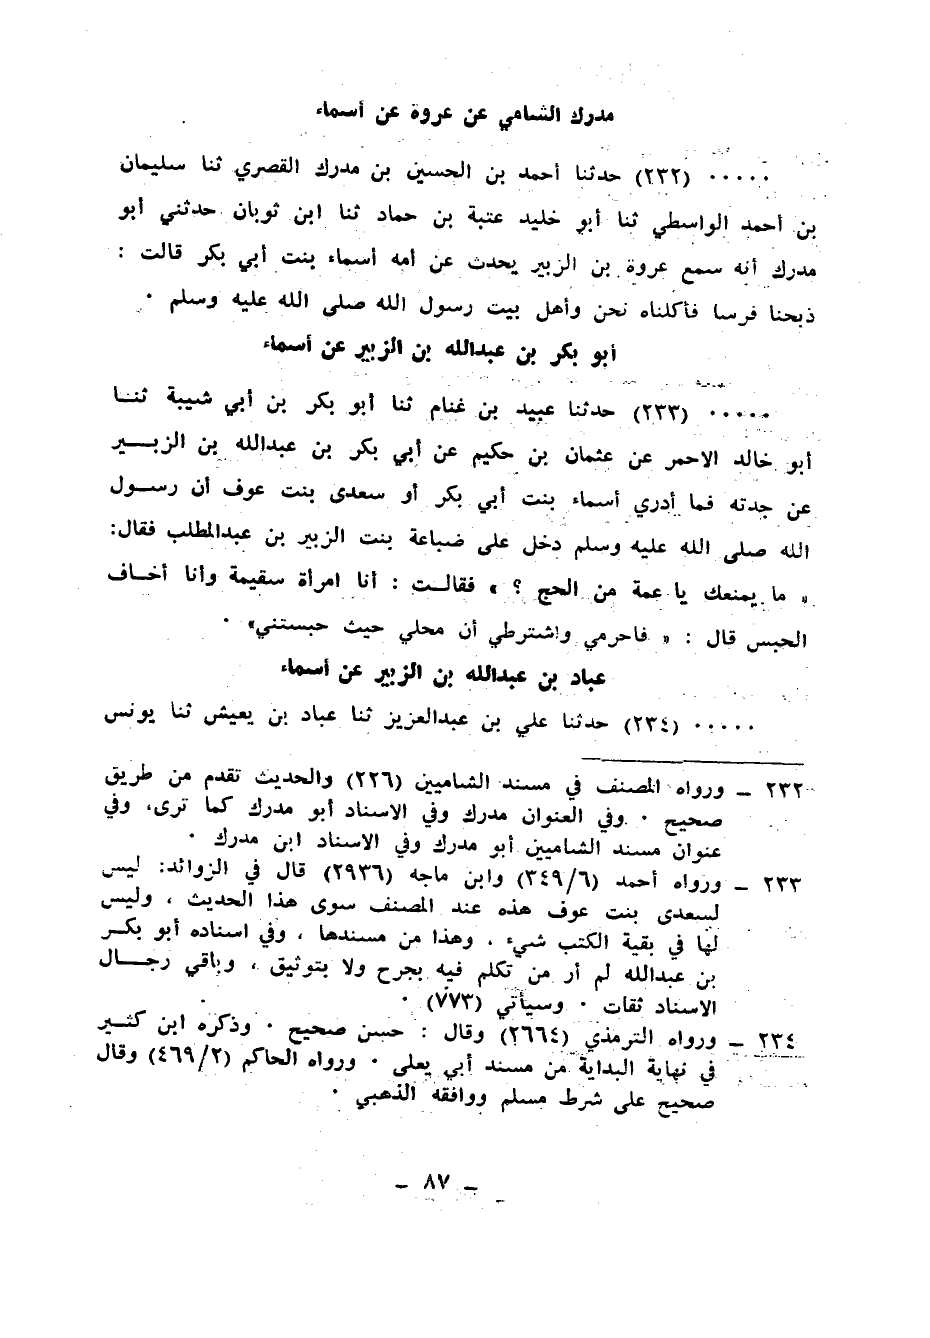 مدرك الشامي عن عروة عن أسماء
..... (٢٣٢) حدثنا أحمد بن الحسين بن مدرك القصري ثنا سليمان
بن أحمد الواسطي ثنا أبو خليد عتبة بن حماد ثنا ابن ثوبان حدثني أبو
مدرك أنه سمع عروة بن الزبير يحدث عن أمه أسماء بنت أبي بكر قالت :
ذبحنا فرسا فأكلناه نحن وأهل بيت رسول الله صلى الله عليه وسلم .
أبو بكر بن عبدالله بن الزبير عن أسماء
..... (٢٣٣) حدثنا عبيد بن غنام ثنا أبو بكر بن أبي شيبة ثنا
أبو خالد الاحمر عن عثمان بن حكيم عن أبي بكر بن عبدالله بن الزبير
عن جدته فما أدري أسماء بنت أبي بكر أو سعدى بنت عوف أن رسول
الله صلى الله عليه وسلم دخل على ضباعة بنت الزبير بن عبدالمطلب فقال:
« ما يمنعك يا عمة من الحج ؟ » فقالت : أنا امرأة سقيمة وأنا أخاف
الحبس قال : « فاحرمي واشترطي أن محلي حيث حبستني» .
عباد بن عبدالله بن الزبير عن أسماء
..... (٢٣٤) حدثنا علي بن عبدالعزيز ثنا عباد بن يعيش ثنا يونس
٢٣٢ ــ ورواه المصنف في مسند الشاميين (٢٢٦) والحديث تقدم من طريق
صحيح . وفي العنوان مدرك وفي الاسناد أبو مدرك كما ترى، وفي
عنوان مسند الشاميين أبو مدرك وفي الاسناد ابن مدرك .
٢٣٣ ــ ورواه أحمد (٣٤٩/٦) وابن ماجه (٢٩٣٦) قال في الزوائد: ليس
لسعدى بنت عوف هذه عند المصنف سوى هذا الحديث ، وليس
لها في بقية الكتب شيء ، وهذا من مسندها ، وفي اسناده أبو بكر
بن عبدالله لم أر من تكلم فيه بجرح ولا بتوثيق ، وباقي رجال
الاسناد ثقات . وسيأتي (٧٧٣) .
٢٣٤ ــ ورواه الترمذي (٢٦٦٤) وقال : حسن صحيح . وذكره ابن كثير
في نهاية البداية من مسند أبي يعلى . ورواه الحاكم (٤٦٩/٢) وقال
صحيح على شرط مسلم ووافقه الذهبي .
ــ ٨٧ ــ